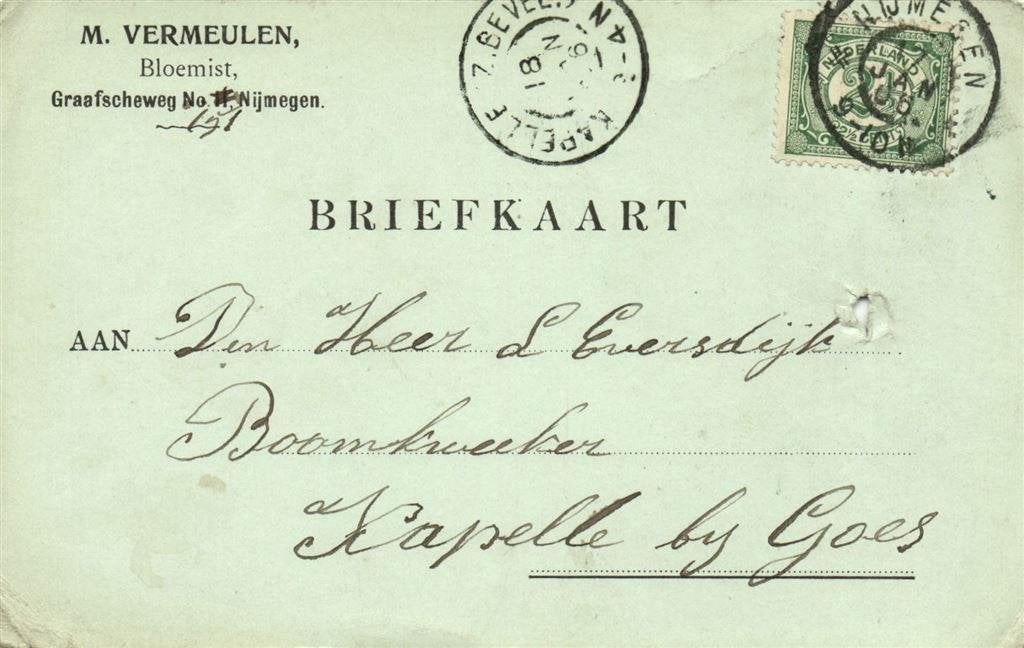 M. VERMEULEN,
Bloemist,
Graafscheweg No. Nijmegen.
KAPELLE Z. BEVEL.
4-8 N
18
NIJMEGEN
JAN
NEDERLAND
2½
BRIEFKAART
AAN Den Heer L Eversdijk
Boomkweeker
Kapelle by Goes